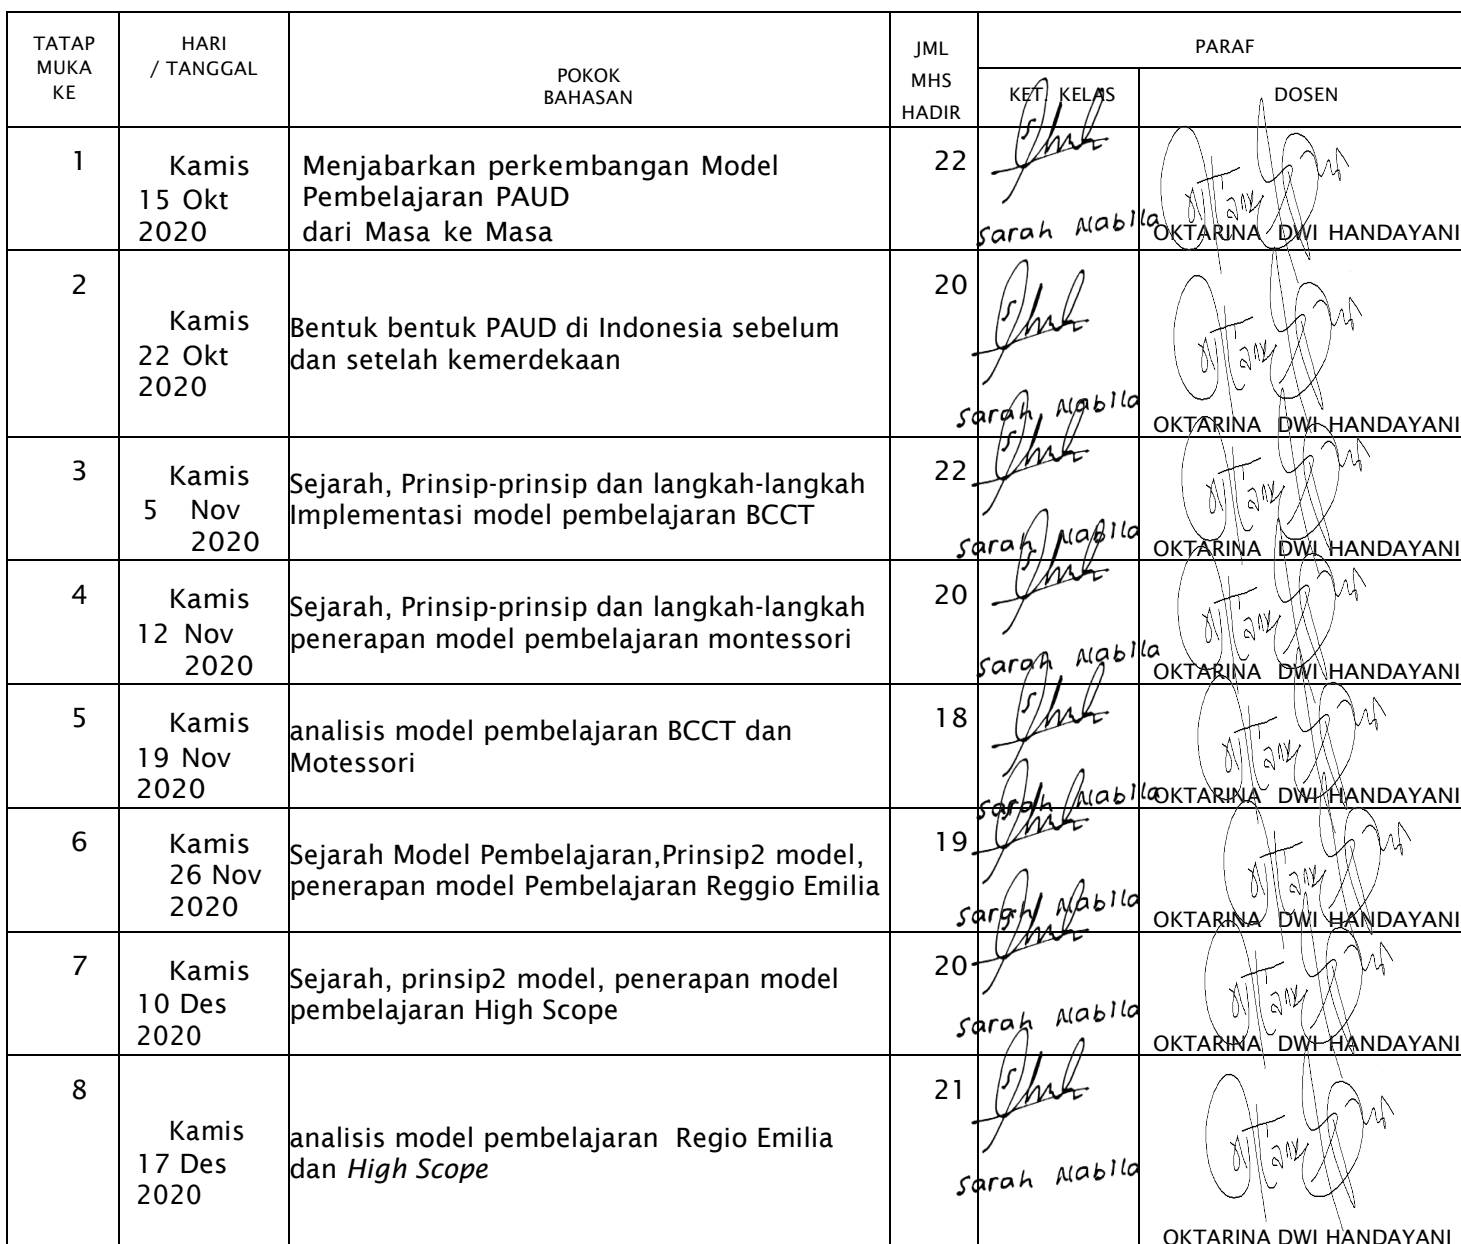 TATAP
MUKA
KE
HARI
/ TANGGAL
POKOK
BAHASAN
JML
MHS
HADIR
PARAF
KET. KELAS
DOSEN
1
Kamis
15 Okt
2020
Menjabarkan perkembangan Model
Pembelajaran PAUD
dari Masa ke Masa
22
Sarah Nabila
OKTARINA DWI HANDAYANI
2
Kamis
22 Okt
2020
Bentuk bentuk PAUD di Indonesia sebelum
dan setelah kemerdekaan
20
Sarah Nabila
OKTARINA DWI HANDAYANI
3
Kamis
5 Nov
2020
Sejarah, Prinsip-prinsip dan langkah-langkah
Implementasi model pembelajaran BCCT
22
Sarah Nabila
OKTARINA DWI HANDAYANI
4
Kamis
12 Nov
2020
Sejarah, Prinsip-prinsip dan langkah-langkah
penerapan model pembelajaran montessori
20
Sarah Nabila
OKTARINA DWI HANDAYANI
5
Kamis
19 Nov
2020
analisis model pembelajaran BCCT dan
Motessori
18
Sarah Nabila
OKTARINA DWI HANDAYANI
6
Kamis
26 Nov
2020
Sejarah Model Pembelajaran,Prinsip2 model,
penerapan model Pembelajaran Reggio Emilia
19
Sarah Nabila
OKTARINA DWI HANDAYANI
7
Kamis
10 Des
2020
Sejarah, prinsip2 model, penerapan model
pembelajaran High Scope
20
Sarah Nabila
OKTARINA DWI HANDAYANI
8
Kamis
17 Des
2020
analisis model pembelajaran Regio Emilia
dan High Scope
21
Sarah Nabila
OKTARINA DWI HANDAYANI